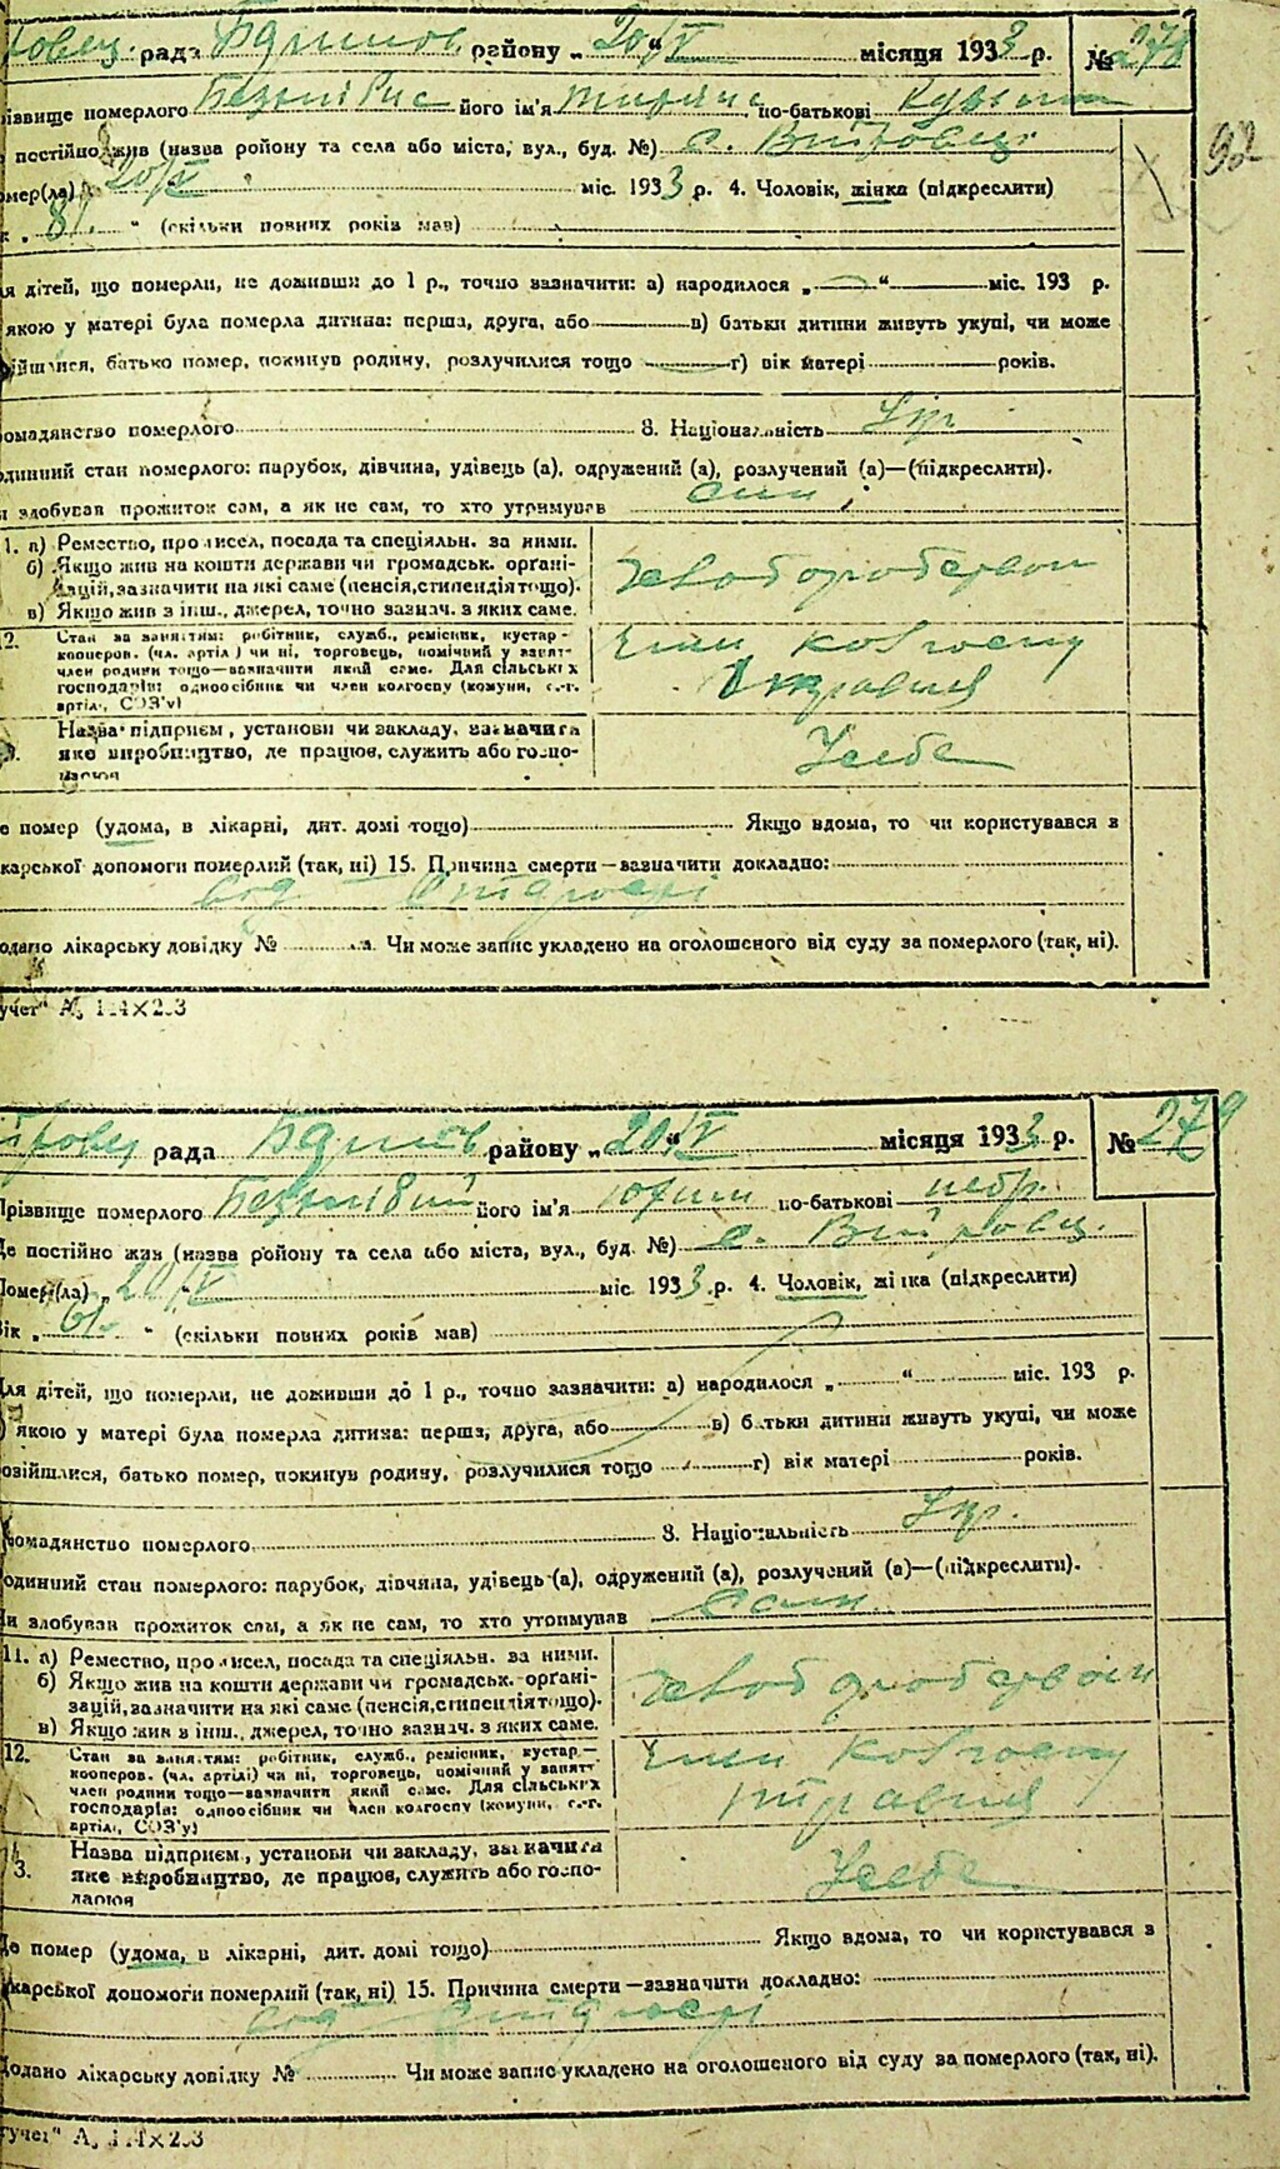 рада район у „ 20/V місяця 1933 р. № 278
92
різвище померлого його ім'я по-батькові
постійно жив (назва ройону та села або міста, вул., буд. №) с.
омер(ла) 20/V міс. 1933 р. 4. Чоловік, жінка (підкреслити)
к „ 81. “ (скільки повних років мав)
я дітей, що померли, не доживши до 1 р., точно зазначити: а) народилося „ “ міс. 193 р.
якою у матері була померла дитина: перша, друга, або в) батьки дитини живуть укупі, чи може
ійшлися, батько помер, покинув родину, розлучилися тощо г) вік матері років.
омадянство померлого 8. Національність Укр
одинний стан померлого: парубок, дівчина, удівець (а), одружений (а), розлучений (а)—(підкреслити).
и здобував прожиток сам, а як не сам, то хто утримував син
1. а) Ремество, промисел, посада та спеціяльн. за ними.
б) Якщо жив на кошти держави чи громадськ. органі-
зацій, зазначити на які саме (пенсія, стипендія тощо).
в) Якщо жив з інш., джерел, точно зазнач. з яких саме.
2. Стан за заняттям: робітник, служб., ремісник, кустар-
кооперов. (чл. артіл) чи ні, торговець, помічний у занят-
член родини тощо—зазначити який саме. Для сільських
господарів: одноосібник чи член колгоспу (комуни, с.-г.
артілі, СОЗ'у)
Член колгоспу
Назва підприєм., установи чи закладу, зазначити
яке виробництво, де працює, служить або госпо-
дарює
У себе
е помер (удома, в лікарні, дит. домі тощо) Якщо вдома, то чи користувався з
карської допомоги померлий (так, ні) 15. Причина смерти—зазначити докладно:
від старості
одано лікарську довідку № Чи може запис укладено на оголошеного від суду за померлого (так, ні).
учет“ А, 1.4×2.3
рада району „ 20/V місяця 1933 р. № 279
Прізвище померлого його ім'я Юхим по-батькові
Де постійно жив (назва ройону та села або міста, вул., буд. №) с.
Помер(ла) „ 20/V міс. 1933 р. 4. Чоловік, жінка (підкреслити)
Вік „ 61. “ (скільки повних років мав)
Для дітей, що померли, не доживши до 1 р., точно зазначити: а) народилося „ “ міс. 193 р.
) якою у матері була померла дитина: перша, друга, або в) батьки дитини живуть укупі, чи може
озійшлися, батько помер, покинув родину, розлучилися тощо г) вік матері років.
ромадянство померлого 8. Національність Укр.
одинний стан померлого: парубок, дівчина, удівець (а), одружений (а), розлучений (а)—(підкреслити).
Чи здобував прожиток сам, а як не сам, то хто утримував сам.
11. а) Ремество, промисел, посада та спеціяльн. за ними.
б) Якщо жив на кошти держави чи громадськ. органі-
зацій, зазначити на які саме (пенсія, стипендія тощо).
в) Якщо жив з інш., джерел, точно зазнач. з яких саме.
12. Стан за заняттям: робітник, служб., ремісник, кустар—
кооперов. (чл. артілі) чи ні, торговець, помічний у занятт
член родини тощо—зазначити який саме. Для сільських
господарів: одноосібник чи член колгоспу (комуни, с.-г.
артілі, СОЗ'у)
Член колгоспу
3. Назва підприєм., установи чи закладу, зазначити
яке виробництво, де працює, служить або госпо-
дарює
У себе
Де помер (удома, в лікарні, дит. домі тощо) Якщо вдома, то чи користувався з
карської допомоги померлий (так, ні) 15. Причина смерти—зазначити докладно:
від старості
Додано лікарську довідку № Чи може запис укладено на оголошеного від суду за померлого (так, ні).
учет“ А, 1.4×2.3